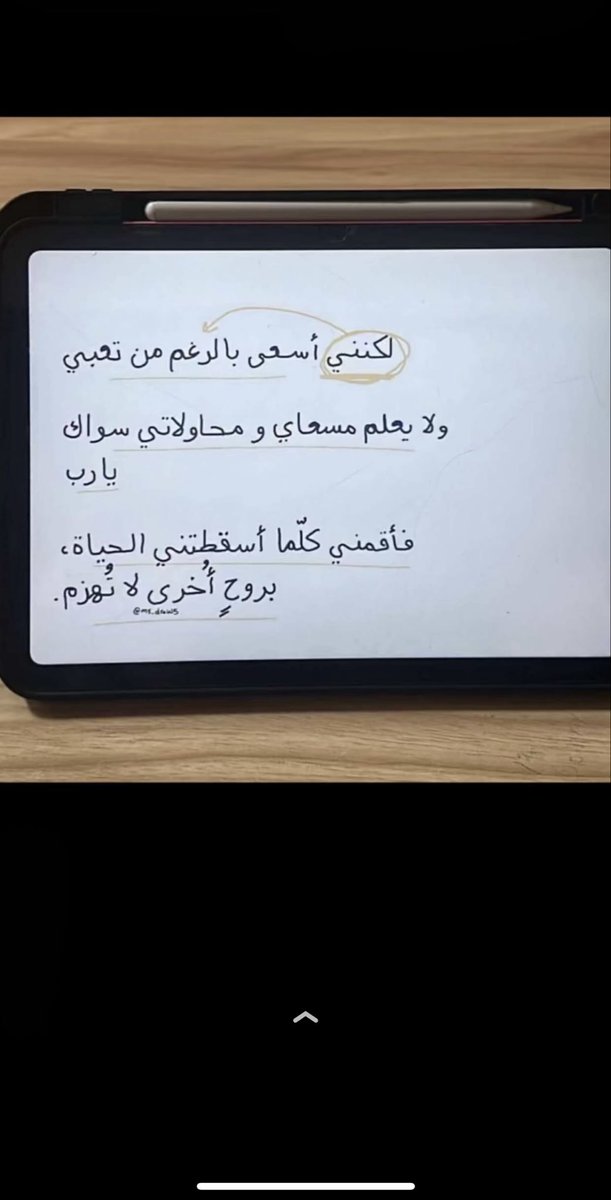 لكنني أسعى بالرغم من تعبي
ولا يعلم مسعاي و محاولاتي سواك
يارب
فأقمني كلّما أسقطتني الحياة،
بروحٍ أُخرى لا تُهزم.
@ms_daws